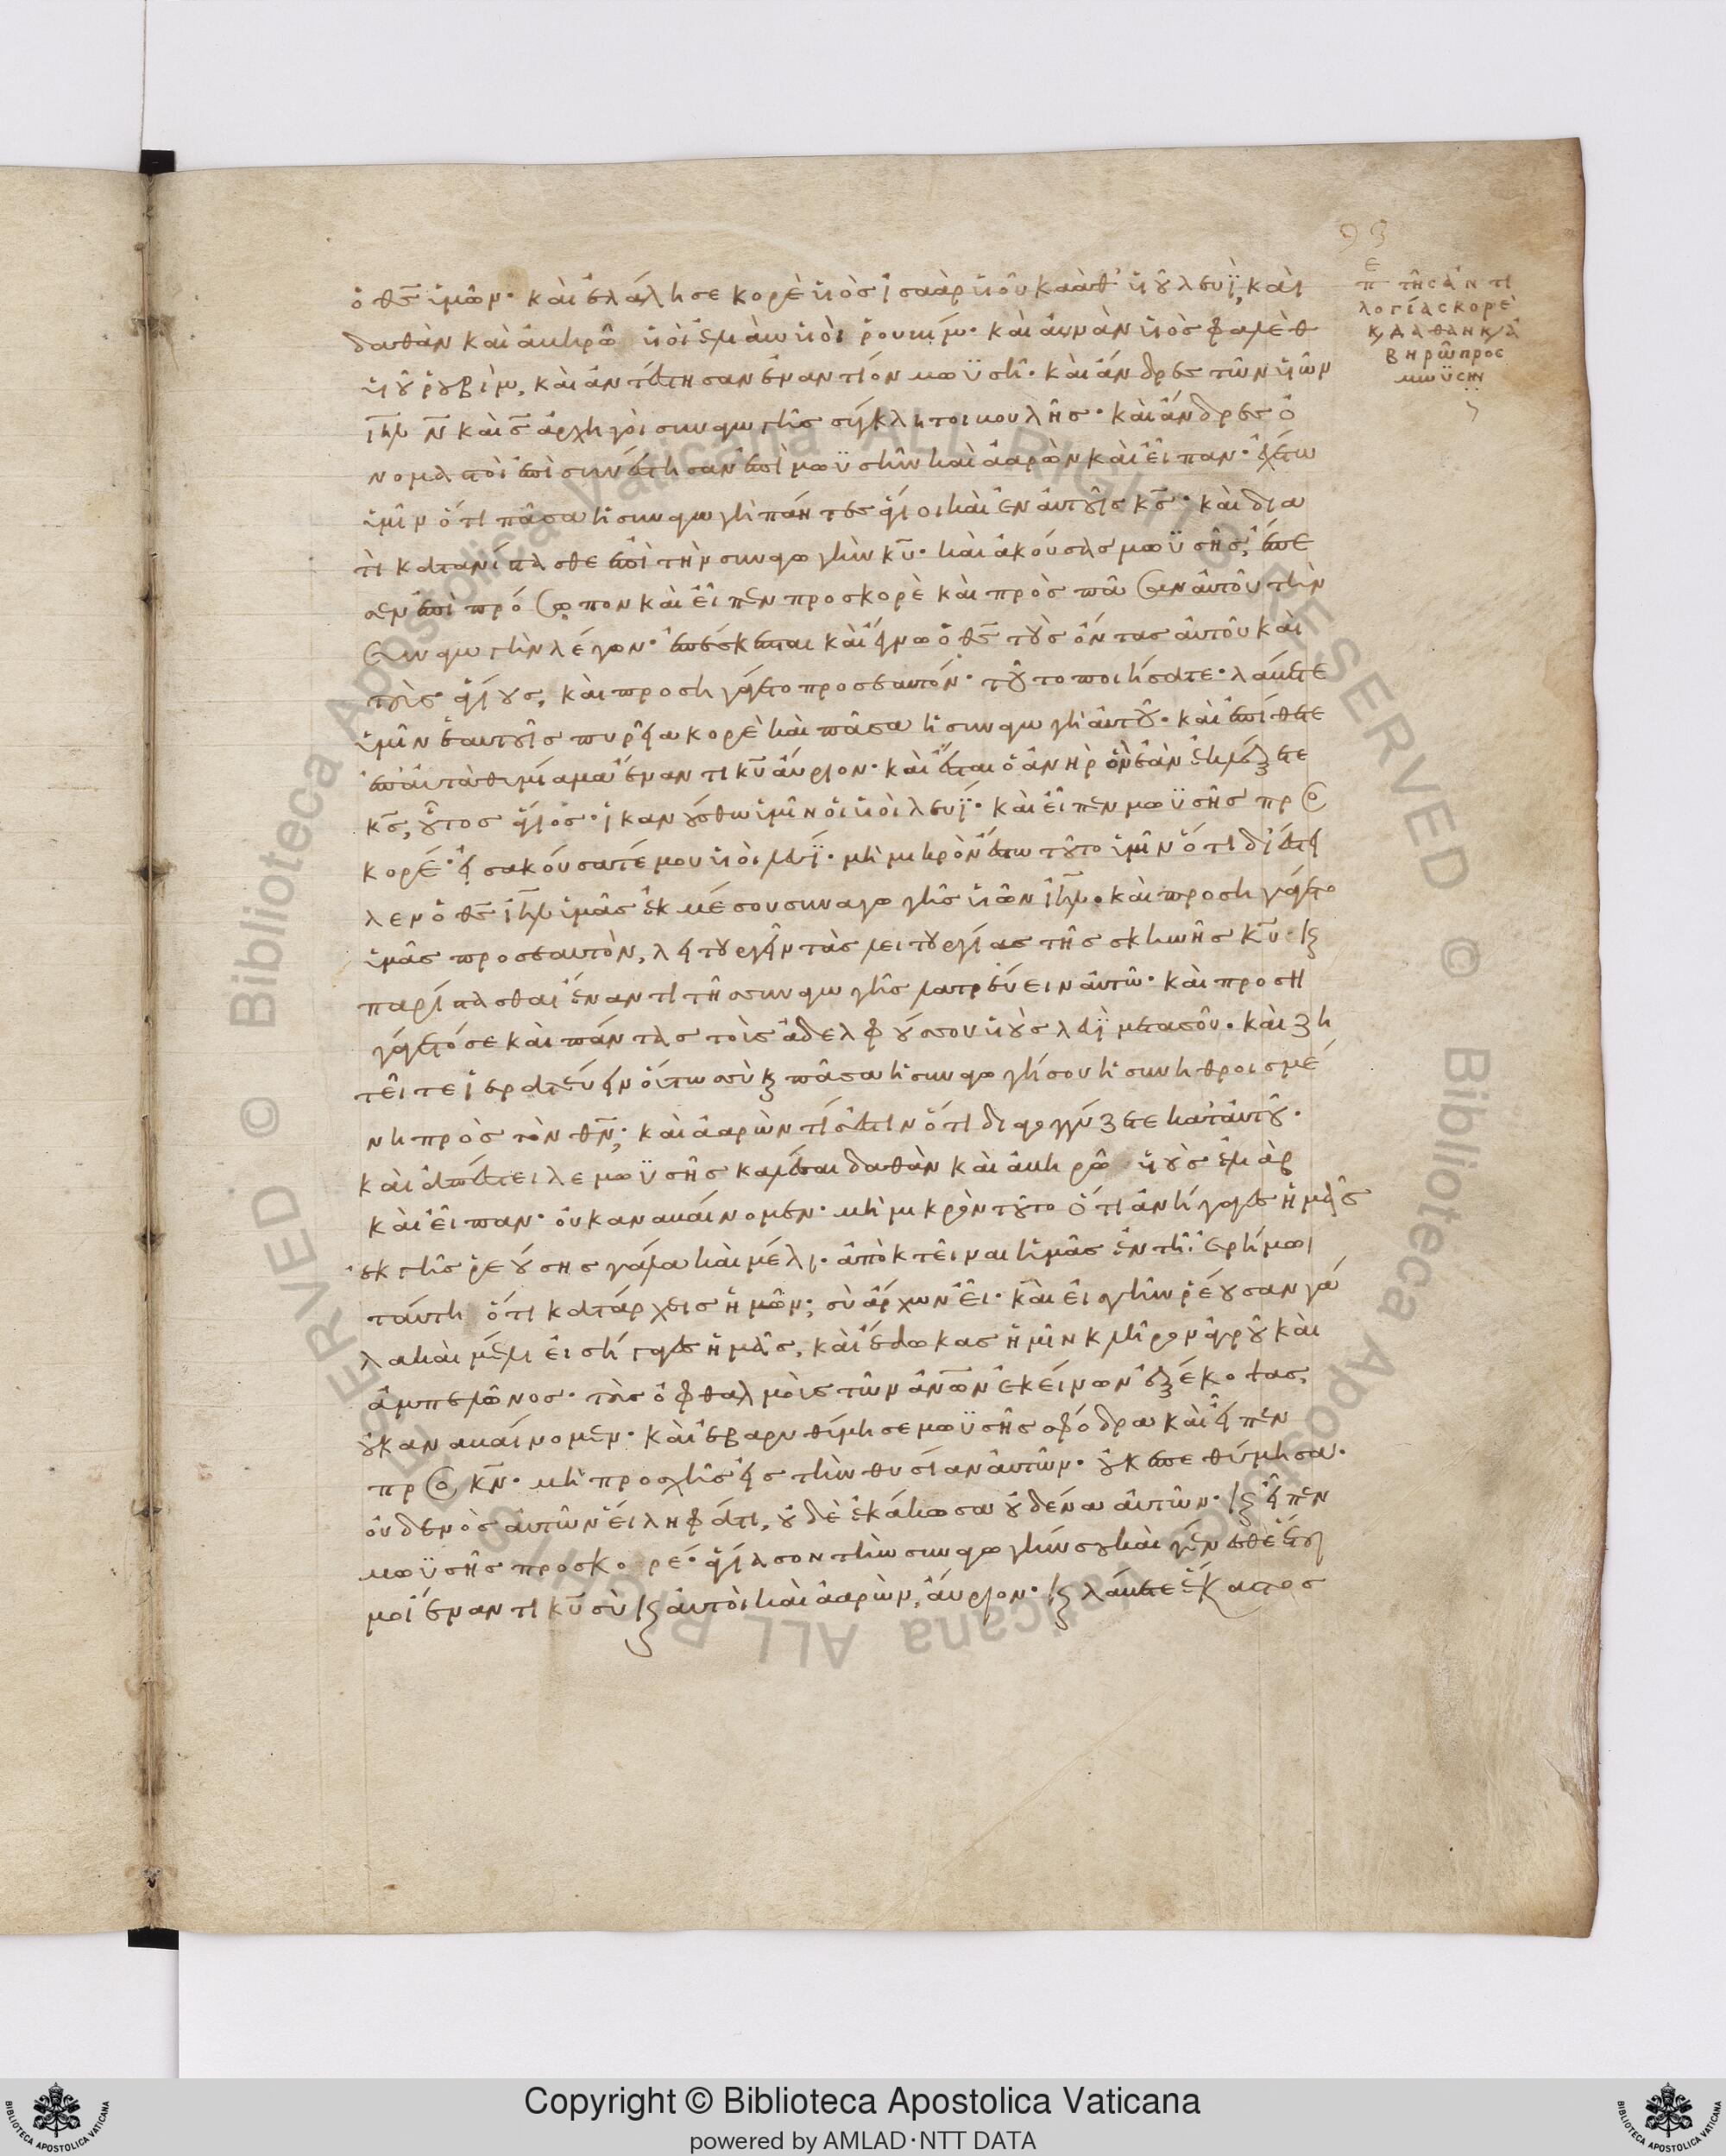 ὁ θς ὑμῶν· καὶ ἐλάλησε κορὲ υἱὸς ἰσαὰρ υἱοῦ καὰθ υἱοῦ λευϊ, καὶ
δαθὰν καὶ ἀβηρὼ υἱοὶ ἐλιὰβ υἱοὶ ῥουβίμ· καὶ αὐνὰν υἱὸς φαλὲθ
υἱοῦ ῥουβὶμ, καὶ ἀντέστησαν ἐναντίον μωϋσῆ· καὶ ἄνδρες τῶν υἱῶν
ιηλ ν καὶ ς ἀρχηγοὶ συναγωγῆς σύγκλητοι βουλῆς· καὶ ἄνδρες ὀ
νομαστοὶ ἐπισυνέστησαν ἐπὶ μωϋσῆν καὶ ἀαρὼν καὶ εἶπαν· ἐχέτω
ὑμῖν ὅτι πᾶσα ἡ συναγωγὴ πάντες ἅγιοι καὶ ἐν αὐτοῖς κς· καὶ δια
τὶ κατανίστασθε ἐπὶ τὴν συναγωγὴν κυ· καὶ ἀκούσας μωϋσῆς, ἔπε
σεν ἐπὶ πρόσωπον καὶ εἶπεν προσκορὲ καὶ πρὸς πᾶσαν αὐτοῦ τὴν
συναγωγὴν λέγων· ἐπέσκεπται καὶ ἔγνω ὁ θς τοὺς ὄντας αὐτοῦ καὶ
τοὺς ἁγίους, καὶ προσηγάγετο προσεαυτόν· τοῦτο ποιήσατε· λάβετε
ὑμῖν ἑαυτοῖς πυρεῖα κορὲ καὶ πᾶσα ἡ συναγωγὴ αὐτοῦ· καὶ ἐπίθετε
ἐπαὐτὰ θυμίαμα ἔναντι κυ αὔριον· καὶ ἔσται ὁ ἀνὴρ ὃν ἐὰν ἐκλέξηται
κς, οὗτος ἅγιός· ἱκανούσθω ὑμῖν οἱ υἱοὶ λευϊ· καὶ εἶπεν μωϋσῆς προς
κορέ· εἰσακούσατέ μου υἱοὶ λευϊ· μὴ μικρόν ἐστω τοῦτο ὑμῖν ὅτι διέστει
λεν ὁ θς ιηλ ὑμᾶς ἐκ μέσου συναγωγῆς υἱῶν ιηλ· καὶ προσηγάγετο
ὑμᾶς προσεαυτὸν, λειτουργεῖν τὰς λειτουργίας τῆς σκηνῆς κυ· κ
παρίστασθαι ἔναντι τῆς συναγωγῆς λατρεύειν αὐτῶ· καὶ προση
γάγετό σε καὶ πάντας τοὺς ἀδελφούς σου υἱοὺς λευϊ μετασοῦ· καὶ ζη
τεῖτε ἱερατεύειν οὕτως σὺ κ πᾶσα ἡ συναγωγή σου ἡ συνηθροισμέ
νη πρὸς τὸν θν; καὶ ἀαρὼν τίς ἐστιν ὅτι διαγογγύζετε κατ αὐτοῦ·
καὶ ἀπέστειλε μωϋσῆς καλέσαι δαθὰν καὶ ἀβηρὼ υἱοὺς ἐλιάβ
καὶ εἶπαν· οὐκ αναβαίνομεν· μὴ μικρὸν τοῦτο ὅτι ἀνήγαγες ἡμᾶς
ἐκ γῆς ῥεούσης γάλα καὶ μέλι· ἀποκτεῖναι ἡμᾶς ἐν τῆ ἐρήμωι
ταύτη ὅτι κατάρχεις ἡμῶν; σὺ ἄρχων εἶ· καὶ εἰ γῆν ῥέουσαν γά
λα καὶ μέλι εἰσήγαγες ἡμᾶς, καὶ ἔδωκας ἡμῖν κλῆρον ἀγροῦ καὶ
ἀμπελῶνος· τοὺς ὀφθαλμοὺς τῶν ἀνων ἐκείνων ἐξέκοψας,
οὐκ αναβαίνομεν· καὶ ἐβαρυθύμησε μωϋσῆς σφόδρα καὶ εἶπεν
προς κν· μὴ προσχῆς εἰς τὴν θυσίαν αὐτῶν· οὐκ ἐπεθύμησα·
οὐδενὸς αὐτῶν εἴληφά τι, οὐδὲ ἐκάκωσα οὐδένα αὐτῶν· κ εἶπεν
μωϋσῆς προσκορέ· ἁγίασον τὴν συναγωγήν σου καὶ γίνεσθε ἕτοι
μοί ἔναντι κυ σὺ κ αὐτοὶ καὶ ἀαρὼν, αὔριον· κ λάβετε ἕκαστος
π τῆς ἀντι
λογίας κορὲ
κ δαθαν κ ἀ
βηρὼ προς
μωϋσῆν